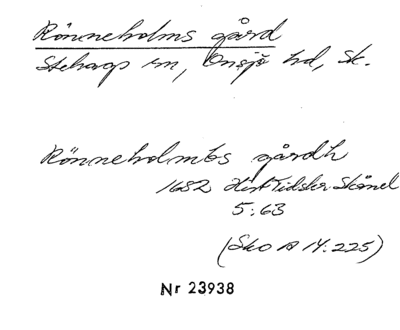 Rönneholms gård
Stehag sn, Onsjö hd, Sk.
Rönneholmbs gårdh
1682 Hist Tidskr Skånel
5:63
(Sko A 14:225)
Nr 23938